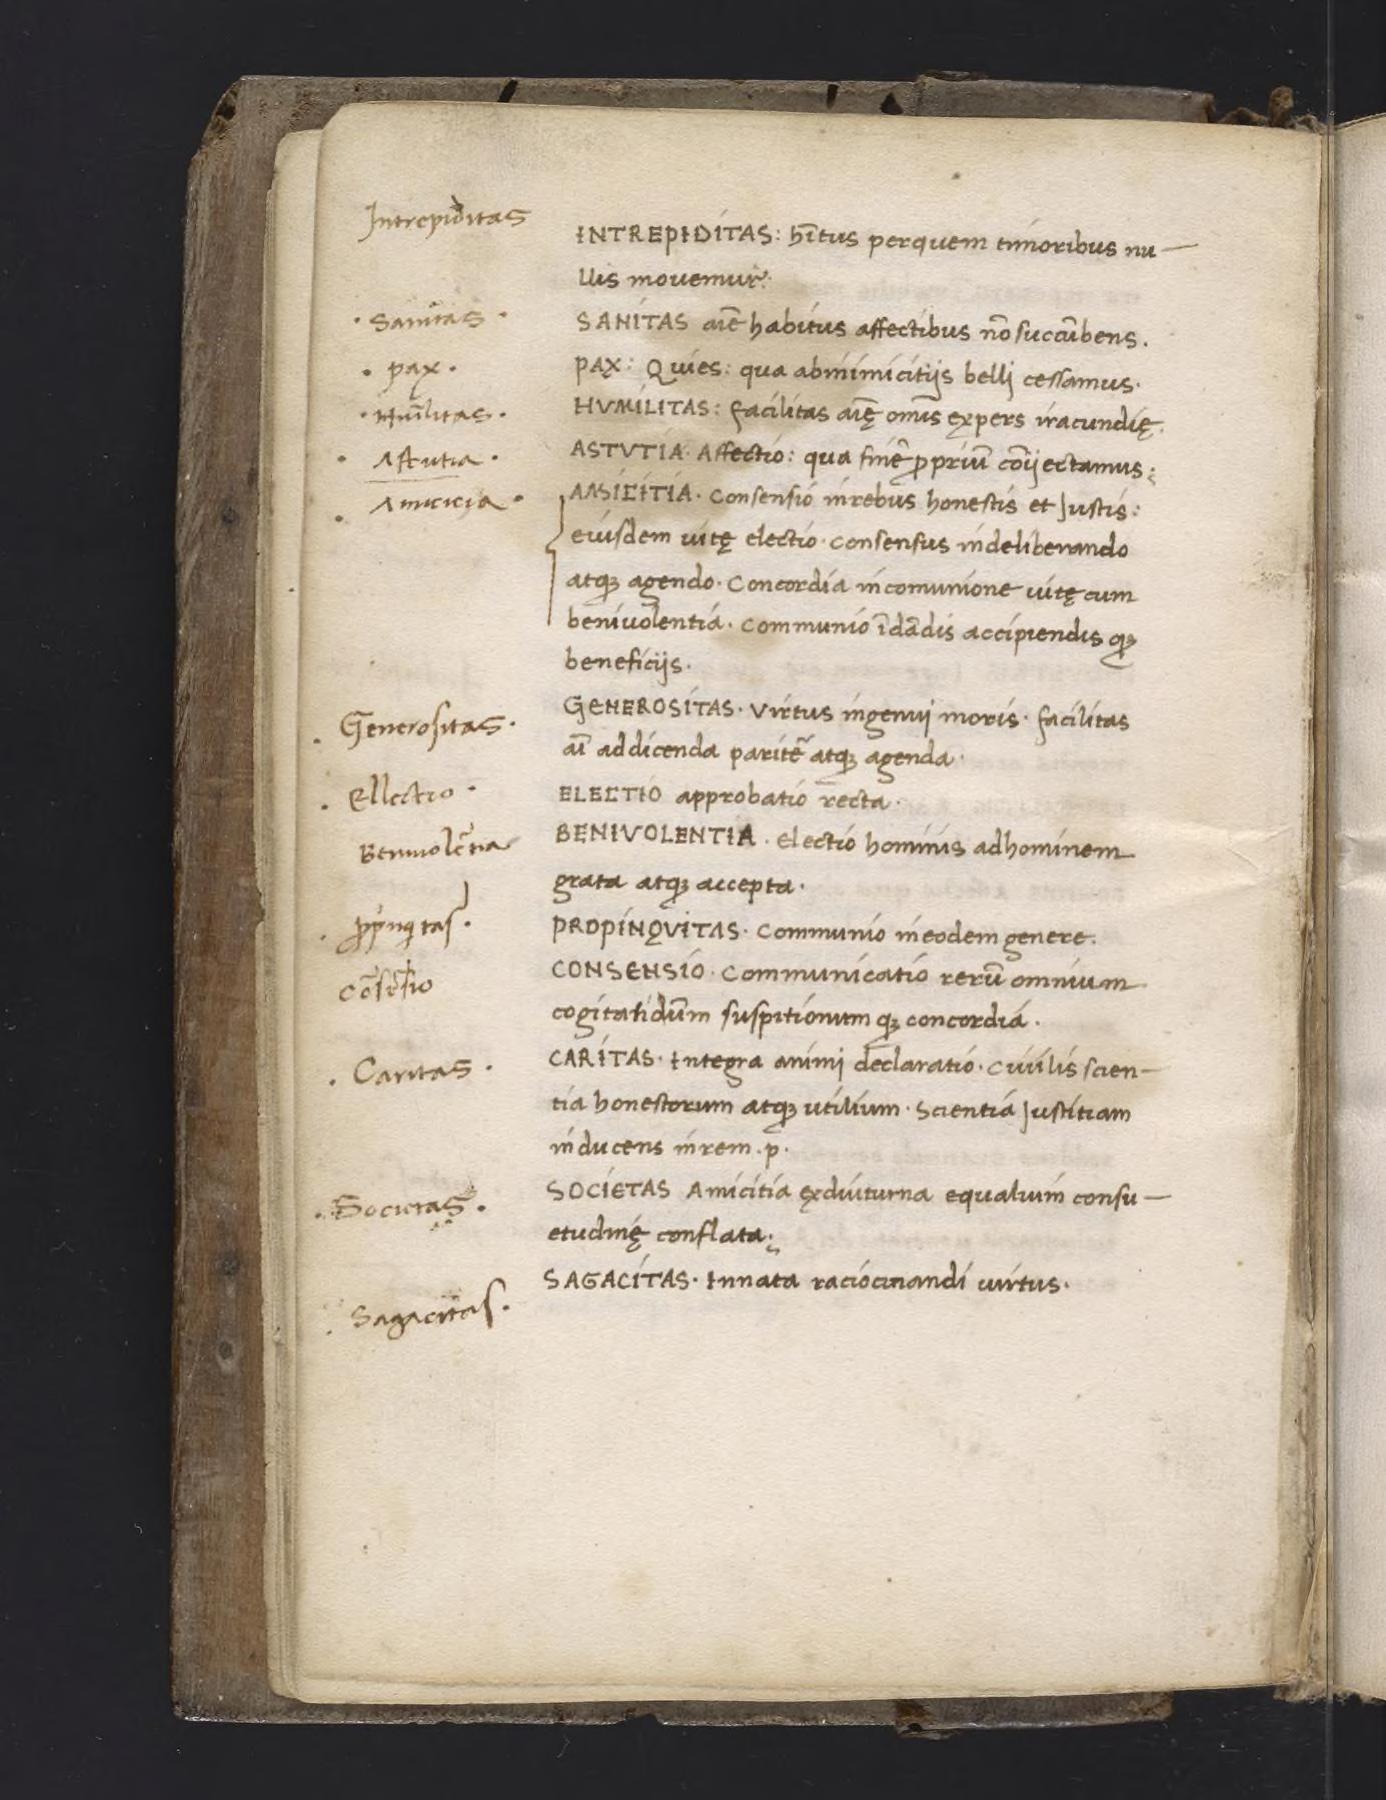 Intrepiditas
INTREPIDITAS: hītus perquem timoribus nu—
llis movemur.
· Sanitas ·
SANITAS aīe habitus affectibus nō succūbens.
· pax ·
PAX: Quies: qua abinimicitijs bellj cessamus.
· Huīlitas ·
HVMILITAS: facilitas aīę omīs ęxpers iracundię.
· Astutia ·
ASTVTIA· Affectio: qua finē propriū cōijectamus:
· Amicicia ·
AMICITIA· Consensio inrebus honestis et Justis:
eiusdem uitę electio· consensus indeliberando
atq3 agendo· Concordia incomunione uitę cum
beniuolentia· communio īdādis accipiendis q3
beneficijs·
· Generositas ·
GENEROSITAS· Virtus ingenuj moris· facilitas
aī addicenda paritē atq3 agenda·
· Ellectio ·
ELECTIO approbatio recta·
Beniuolētia
BENIVOLENTIA· electio hominis adhominem
grata atq3 accepta·
· ꝓpinq̇tas ·
PROPINQVITAS· Communio ineodem genere.
Cōsēsio
CONSENSIO· Communicatio rerū omnium
cogitatidūm suspitionum q3 concordia.
· Caritas ·
CARITAS· Integra animj declaratio· Ciuilis scien—
tia honestorum atq3 utilium· Scientia Justitiam
inducens inrem·p·
· Societas ·
SOCIETAS Amicitia ęxdiuturna equalium consu—
etudinę conflata:
· Sagacitas ·
SAGACITAS· Innata raciocinandi uirtus·